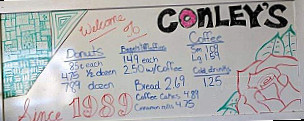 Welcome
to
CONLEY'S
Donuts
85¢ each
4.75 ½ dozen
7.89 dozen
1.49 each
2.50 w/Coffee
Bread 2.69
Coffee Cakes 4.89
Cinnamon rolls 4.75
Coffee
Sm 1.09
Lg 1.59
Cold drinks
1.25
Since 1989